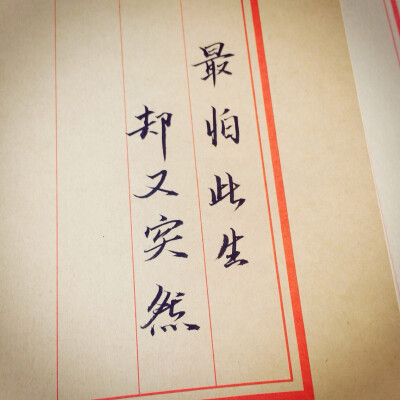 最怕此生
却又突然